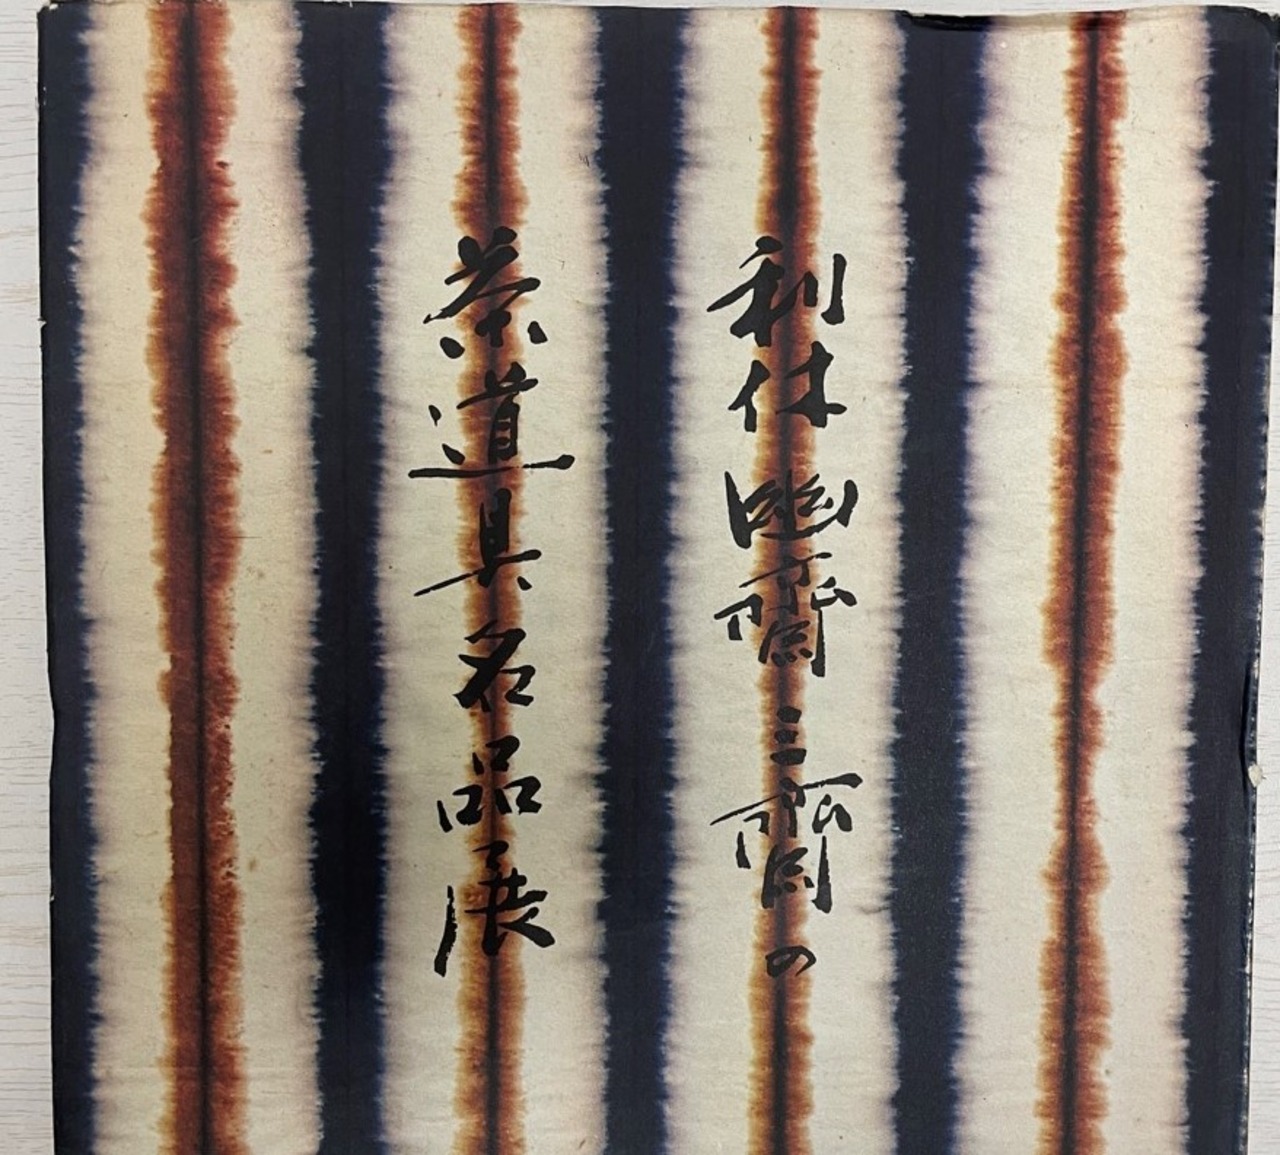 利休 幽齋 三齋の
茶道具名品展